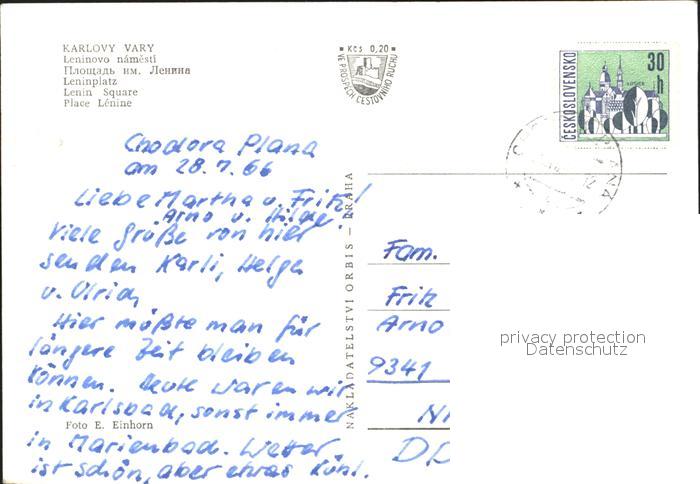 KARLOVY VARY
Leninovo náměstí
Площадь им. Ленина
Leninplatz
Lenin Square
Place Lénine
Kčs 0,20
VE PROSPĚCH CESTOVNÍHO RUCHU
ČESKOSLOVENSKO
30 h
Chodova Plana
am 28.7.66
Liebe Martha u. Fritz!
Arno u. Hilde!
Viele Grüße von hier
senden Karli, Helga
u. Ulrich
Hier müßte man für
längere Zeit bleiben
können. Heute waren wir
in Karlsbad, sonst immer
in Marienbad. Wetter
ist schön, aber etwas kühl.
Foto E. Einhorn
NAKLADATELSTVÍ ORBIS — PRAHA
Fam.
Fritz
Arno
9341
DD
privacy protection
Datenschutz